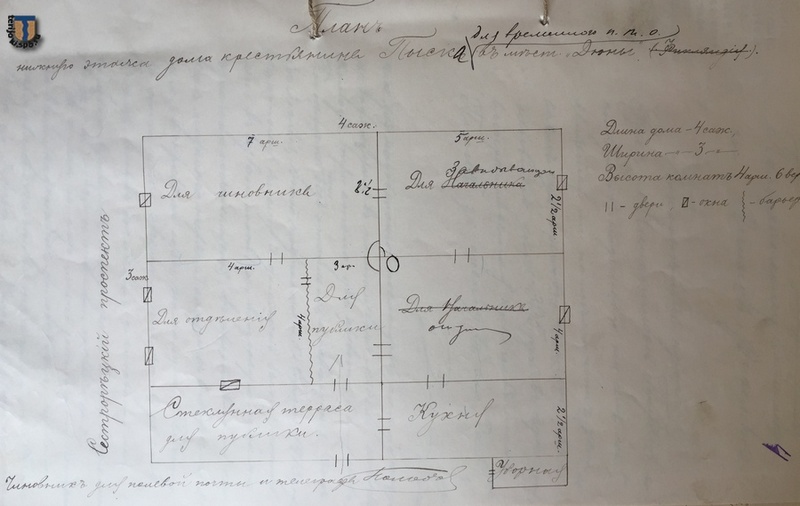 Планъ
для временного п. т. о.
нижняго этажа дома крестьянина въ мѣст. Дюны
4 саж.
7 арш.
5 арш.
Длина дома - 4 саж.
Ширина — 3 —
Высота комнатъ 4 арш. 6 вер
|| - двери - окна - барьер
Для чиновника
2 1/2
Завѣдывающаго
Для Начальника
2 1/2 арш
Сестрорѣцкій проспектъ
3 саж
4 арш.
3 ар.
Для отдѣленія
4 арш
Для
публики
Для Начальник
4 арш
Стеклянная терраса
для публики.
Кухня
2 1/2 арш
Уборная
Чиновникъ для полевой почты и телеграфа